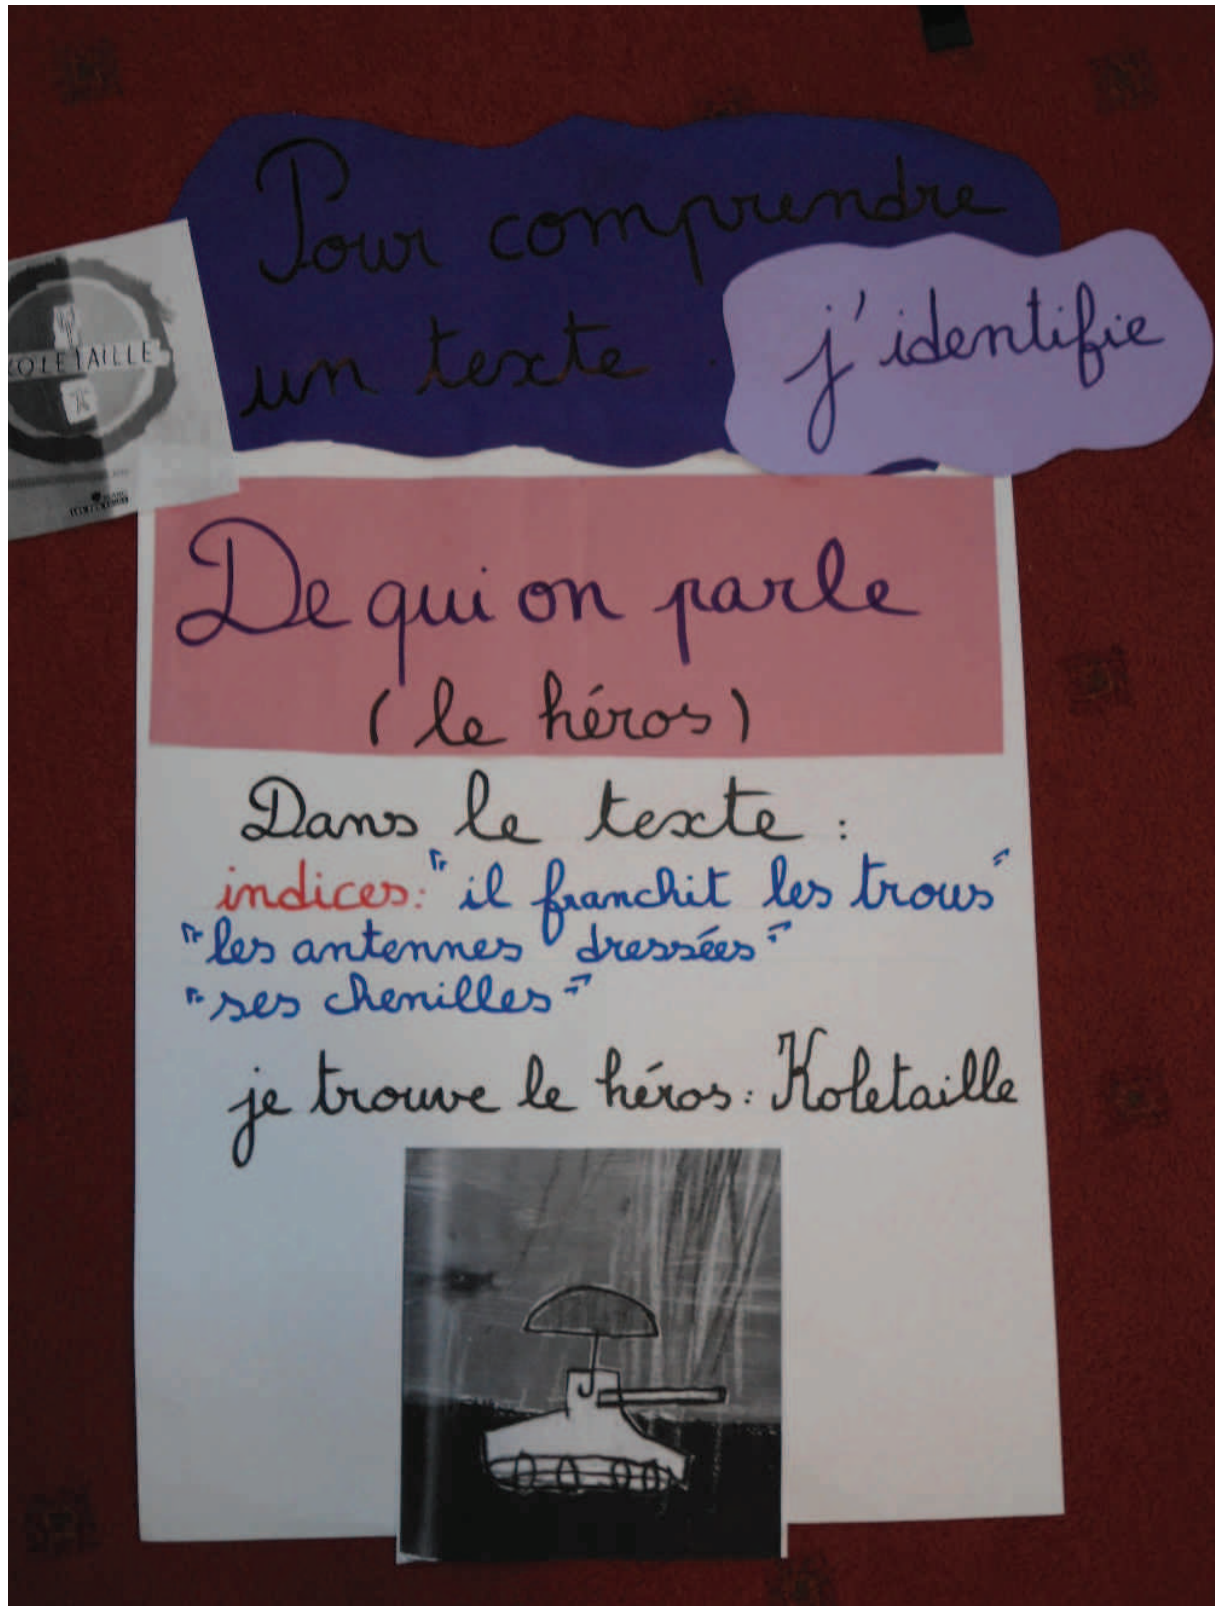 Pour comprendre
un texte
j'identifie
OLETAILLE
De qui on parle
(le héros)
Dans le texte :
indices: "il franchit les trous"
"les antennes dressées"
"ses chenilles"
je trouve le héros : Koletaille